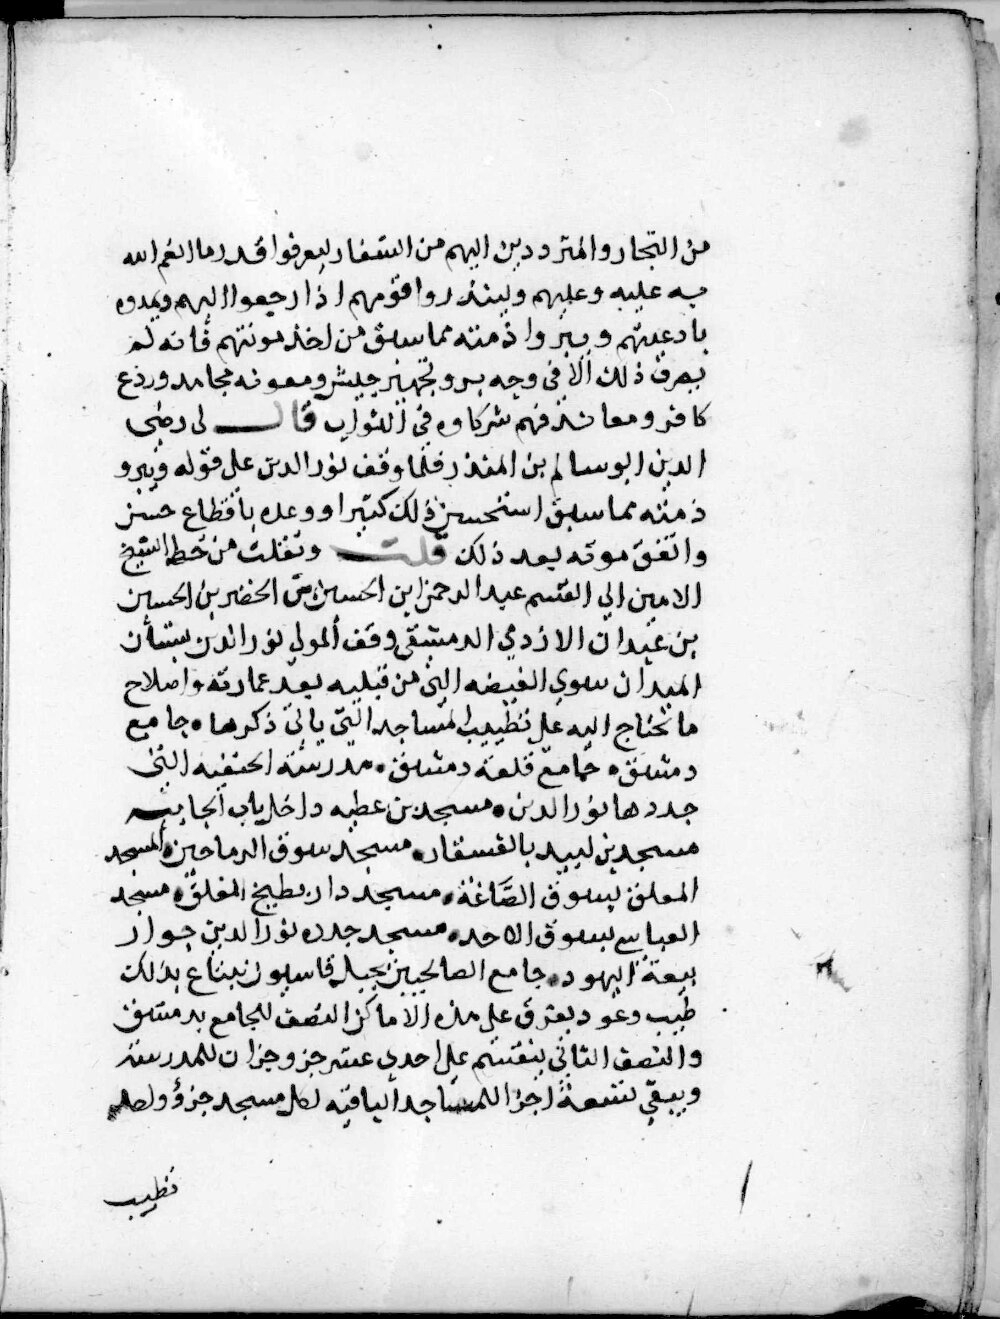 من التجار والمترددين اليهم من السفار ليعرفوا قدر ما انعم الله
به عليه وعليهم ولينذروا قومهم اذا رجعوا اليهم ويمدوه
بادعيتهم ويبروا ذمته مما سبق من اخذ مونتهم فانه لم
يصرف ذلك الا في وجه بر وتجهيز جيش ومعونه مجاهد وردع
كافر ومعاند فهم شركاوه في الثواب قال لى رضى
الدين ابو سالم بن المنذر فلما وقف نور الدين على قوله ويبروا
ذمته مما سبق استحسن ذلك كثيرا ووعده باقطاع حسن
واتفق موته بعد ذلك قلت ونقلت من خط الشيخ
الامين ابي القسم عبد الرحمن ابن الحسين بن الخضر بن الحسين
بن عبدان الازدي الدمشقي وقف المولى نور الدين بستان
الميدان سوي الغيضه التي من قبليه بعد عمارته واصلاح
ما تحتاج اليه على تطييب المساجد التي ياتي ذكرها جامع
دمشق جامع قلعة دمشق مدرسة الحنفيه التي
جددها نور الدين مسجد بن عطيه داخل باب الجابيه
مسجد بن لبيد بالفسقار مسجد سوق الرماحين المسجد
المعلق بسوق الصاغة مسجد دار بطيخ المغلق مسجد
العباسي بسوق الاحد مسجد جدده نور الدين جوار
بيعة اليهود جامع الصالحيين بجبل قاسيون يبتاع بذلك
طيب وعود يفرق على هذه الاماكن النصف للجامع بدمشق
والنصف الثاني ينقسم على احدي عشر جزو جزان للمدرسة
ويبقي تسعة اجزا للمساجد الباقيه لكل مسجد جزؤ واحد
تطيب